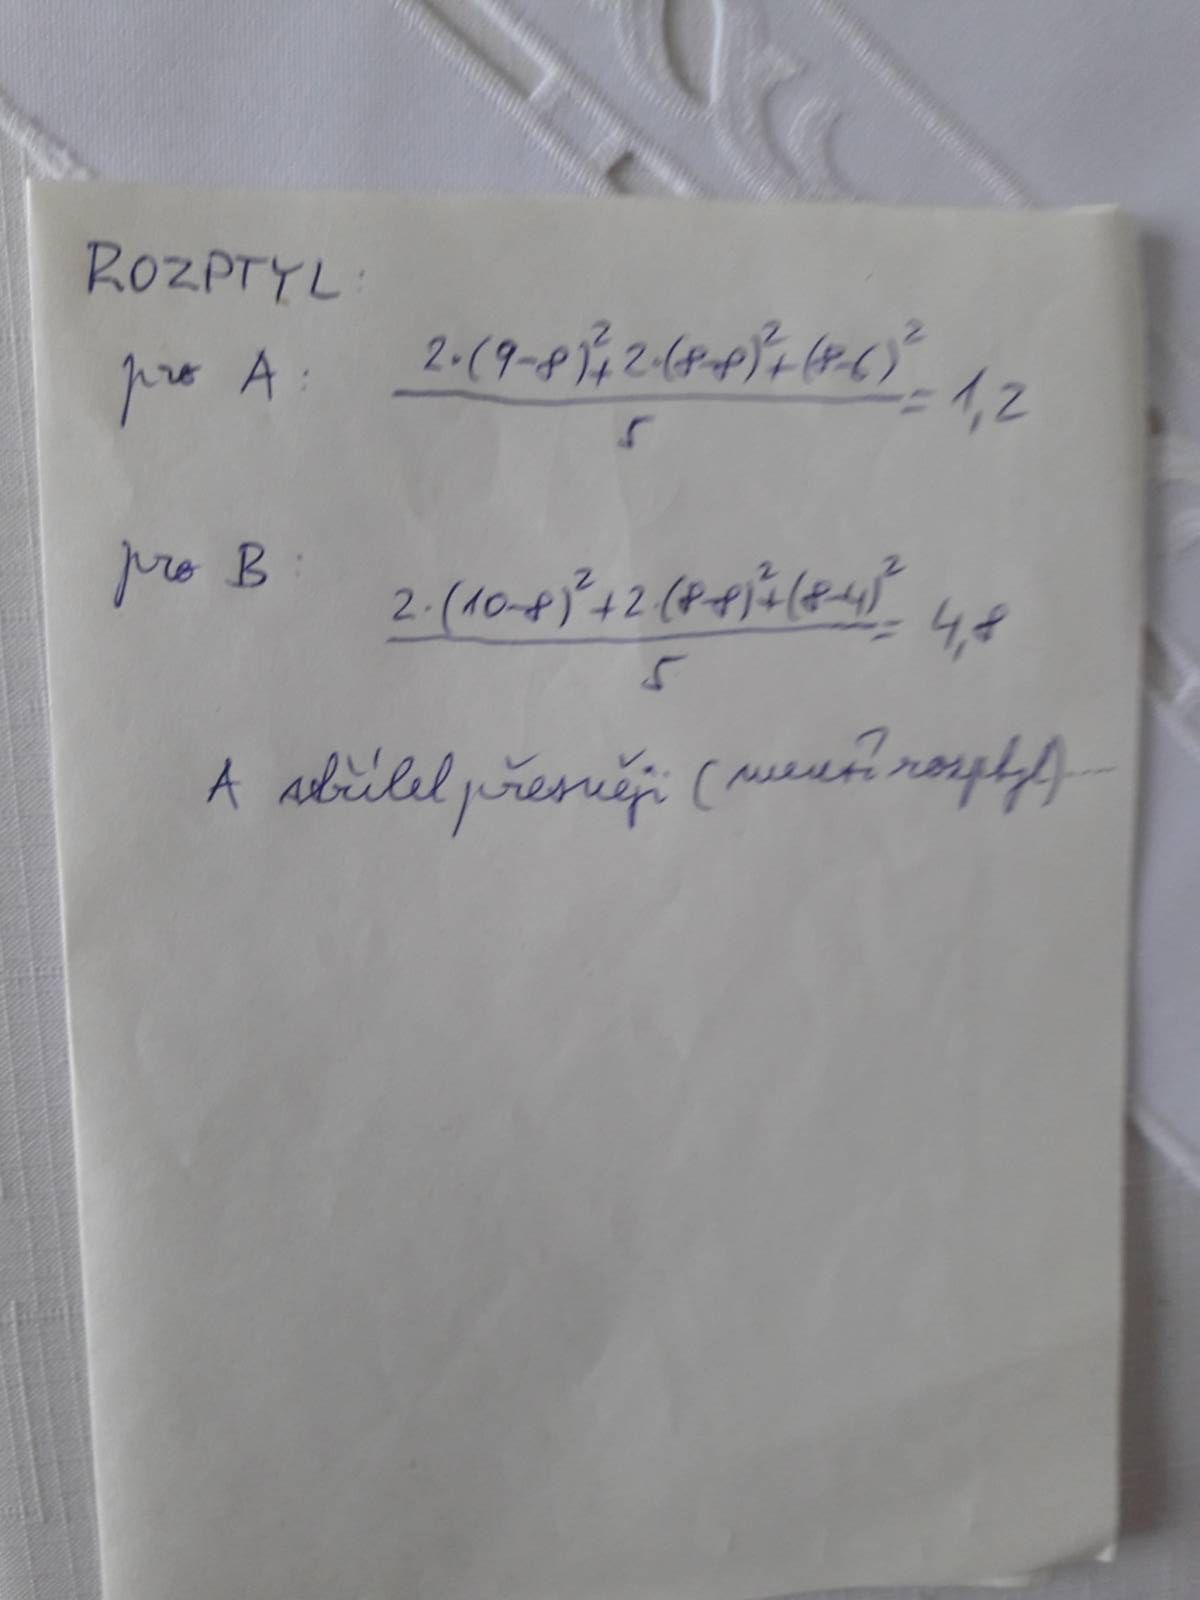 ROZPTYL:
pro A: (2·(9-8)²+2·(8-8)²+(8-6)²)/5 = 1,2
pro B: (2·(10-8)²+2·(8-8)²+(8-4)²)/5 = 4,8
A střílel přesněji (menší rozptyl)...